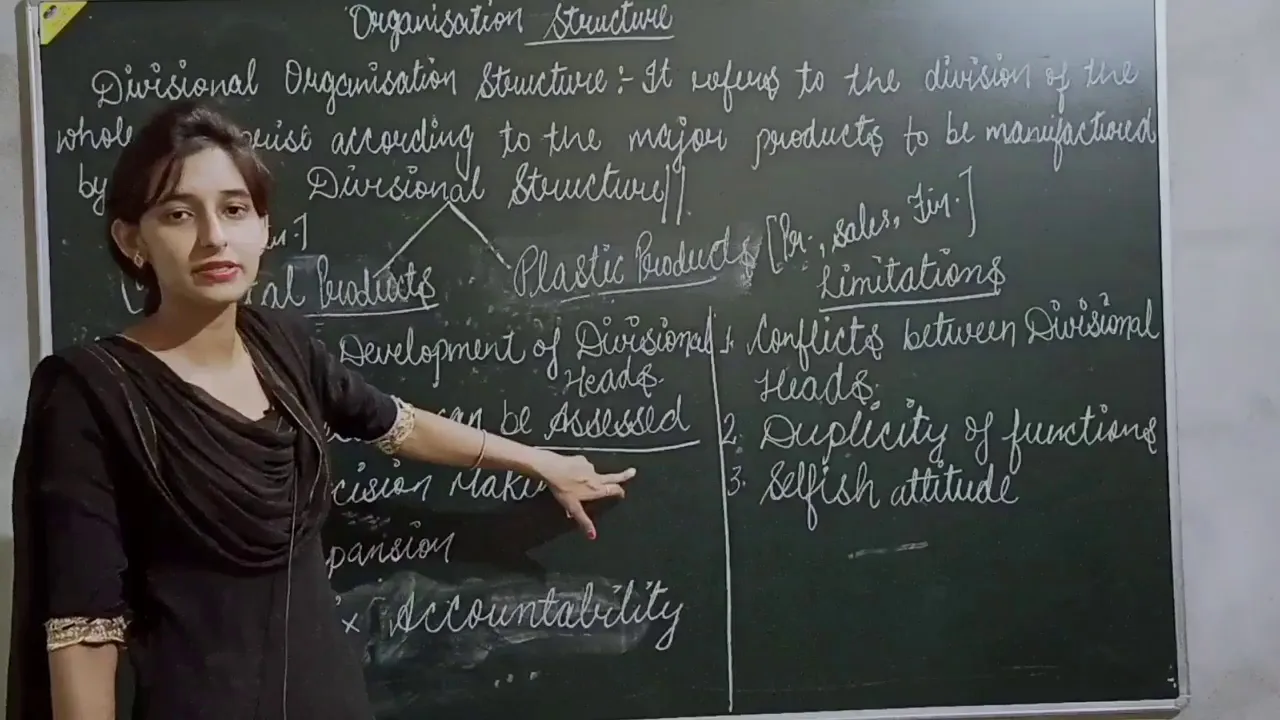 Organisation Structure
Divisional Organisation Structure :- It refers to the division of the
whole according to the major products to be manufactured
by Divisional Structure ||
Products Plastic Products [Pr., Sales, Fin.]
Limitations
Development of Divisional Heads
can be Assessed
Accountability
1. Conflicts between Divisional
Heads.
2. Duplicity of functions
3. Selfish attitude